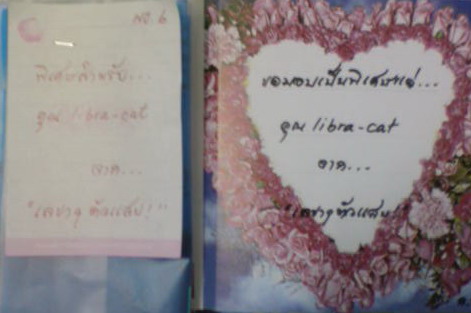 NO. 6
พิเศษสำหรับ...
คุณ libra-cat
จาก...
"เลขาๆ ตัวแสบ!"
ขอมอบเป็นพิเศษแด่...
คุณ libra-cat
จาก...
"เลขาๆ ตัวแสบ!"